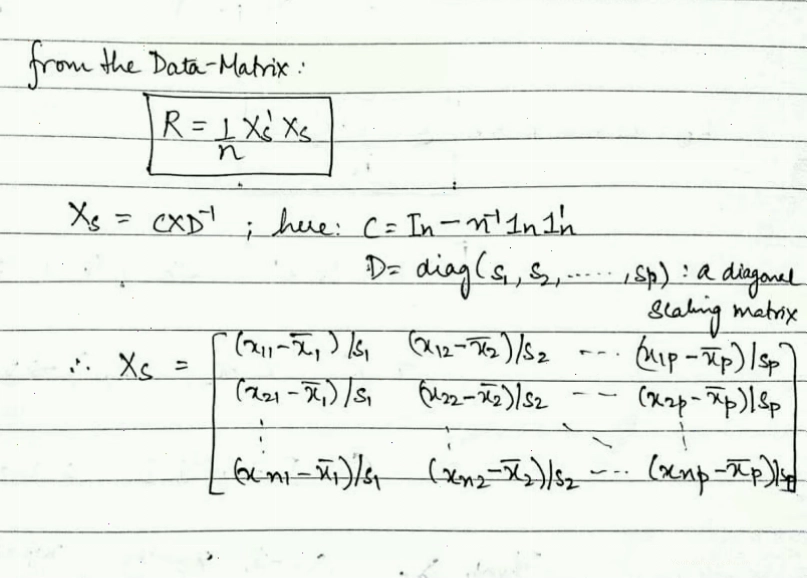 from the Data-Matrix:
R = 1/n Xs' Xs
Xs = CXD⁻¹ ; here: C = In − n⁻¹ 1n 1'n
D = diag(s₁, s₂, ......, sp) : a diagonal
scaling matrix
∴ Xs = [ (x11−x̄1)/s1 (x12−x̄2)/s2 --- (x1p−x̄p)/sp
(x21−x̄1)/s1 (x22−x̄2)/s2 -- (x2p−x̄p)/sp
(xn1−x̄1)/s1 (xn2−x̄2)/s2 ---- (xnp−x̄p)/sp ]